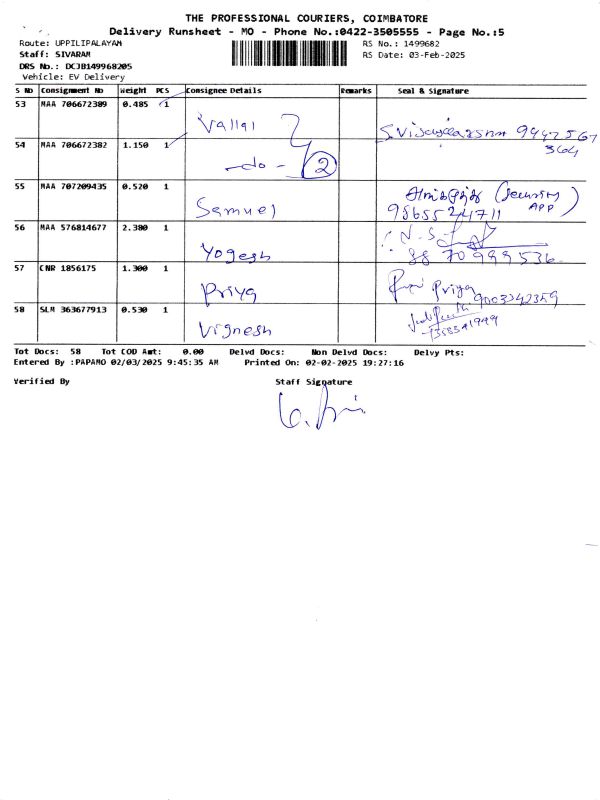 THE PROFESSIONAL COURIERS, COIMBATORE
Delivery Runsheet - MO - Phone No.:0422-3505555 - Page No.:5
Route: UPPILIPALAYAM
RS No.: 1499682
Staff: SIVARAM
RS Date: 03-Feb-2025
DRS No.: DCJB149968205
Vehicle: EV Delivery
S No Consignment No Weight PCS Consignee Details Remarks Seal & Signature
53 MAA 706672309 0.485 1
Vallal
S.Vijayalakshmi 9442567
364
54 MAA 706672382 1.150 1
-do- 2
55 MAA 707209435 0.520 1
Samuel
(Security APP)
9865524711
56 MAA 576814677 2.380 1
Yogesh
N.S
8870999536
57 CNR 1856175 1.300 1
Priya
Priya 9003342359
58 SLM 363677913 0.530 1
Vignesh
Tot Docs: 58 Tot COD Amt: 0.00 Delvd Docs: Non Delvd Docs: Delvy Pts:
Entered By :PAPAMO 02/03/2025 9:45:35 AM Printed On: 02-02-2025 19:27:16
Verified By Staff Signature